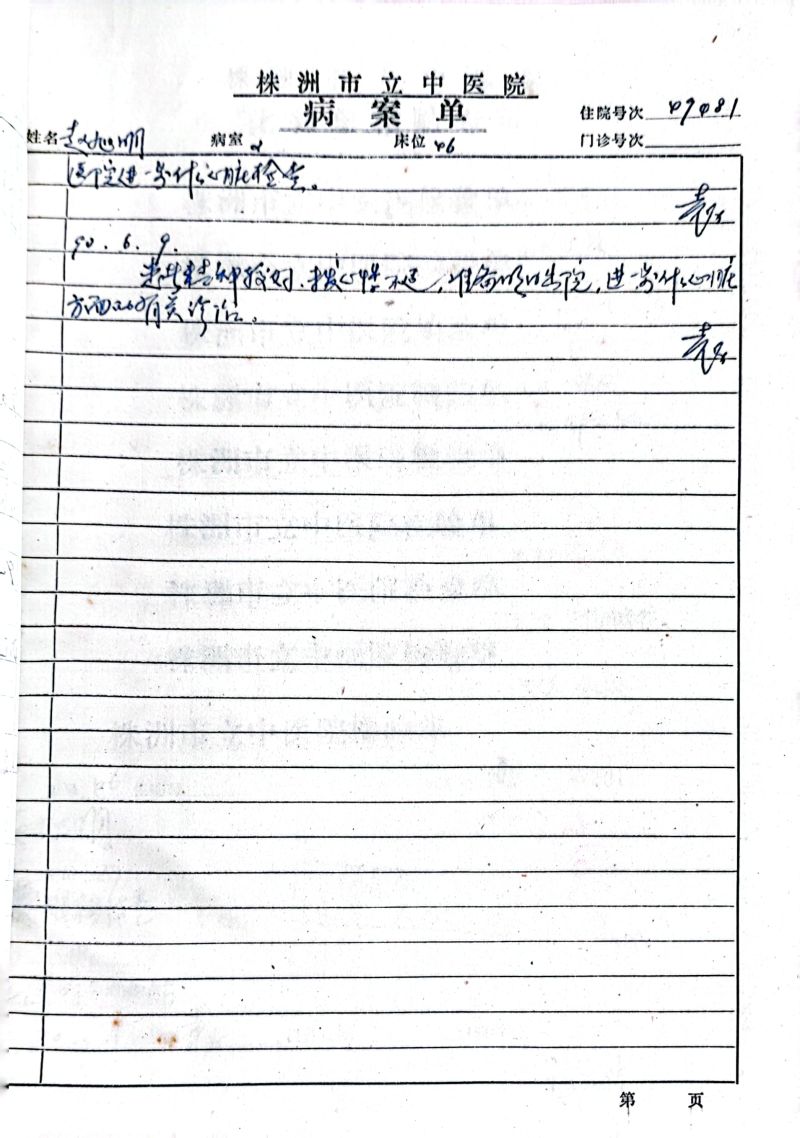 株洲市立中医院
病案单
住院号次 49481
姓名 赵旭明 病室 2 床位 46 门诊号次
医院进一步作心脏检查。
袁
90.6.9.
患者精神较好，准备明日出院，进一步作心脏
方面的有关诊治。
袁
第 页